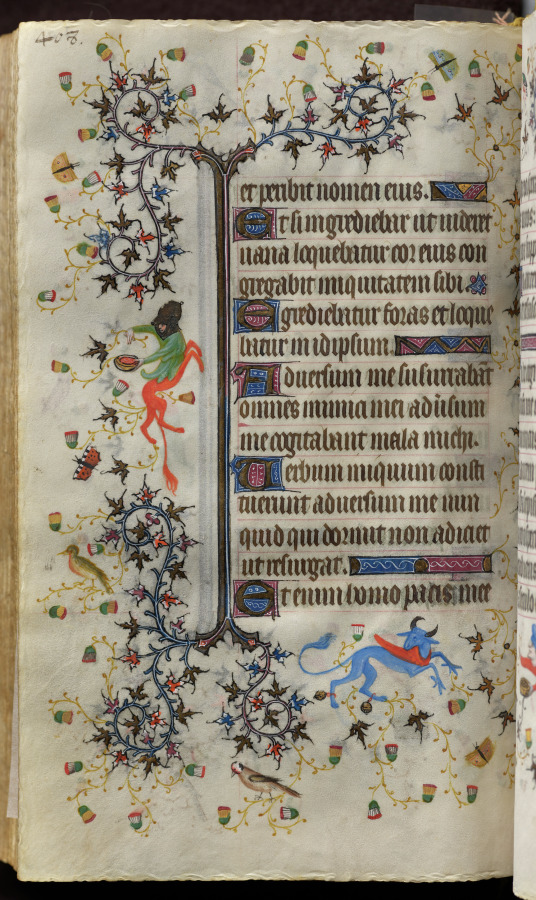 403.
et peribit nomen eius.
Et si ingrediebar ut uideret
uana loquebatur cor eius con
gregabit iniquitatem sibi.
Egrediebatur foras et loque
batur in idipsum.
Aduersum me susurrabāt
omnes inimici mei aduˀsum
me cogitabant mala michi.
Verbum iniquum consti
tuerunt aduersum me nun
quid qui dormit non adiciet
ut resurgat.
Et enim homo pacis mee